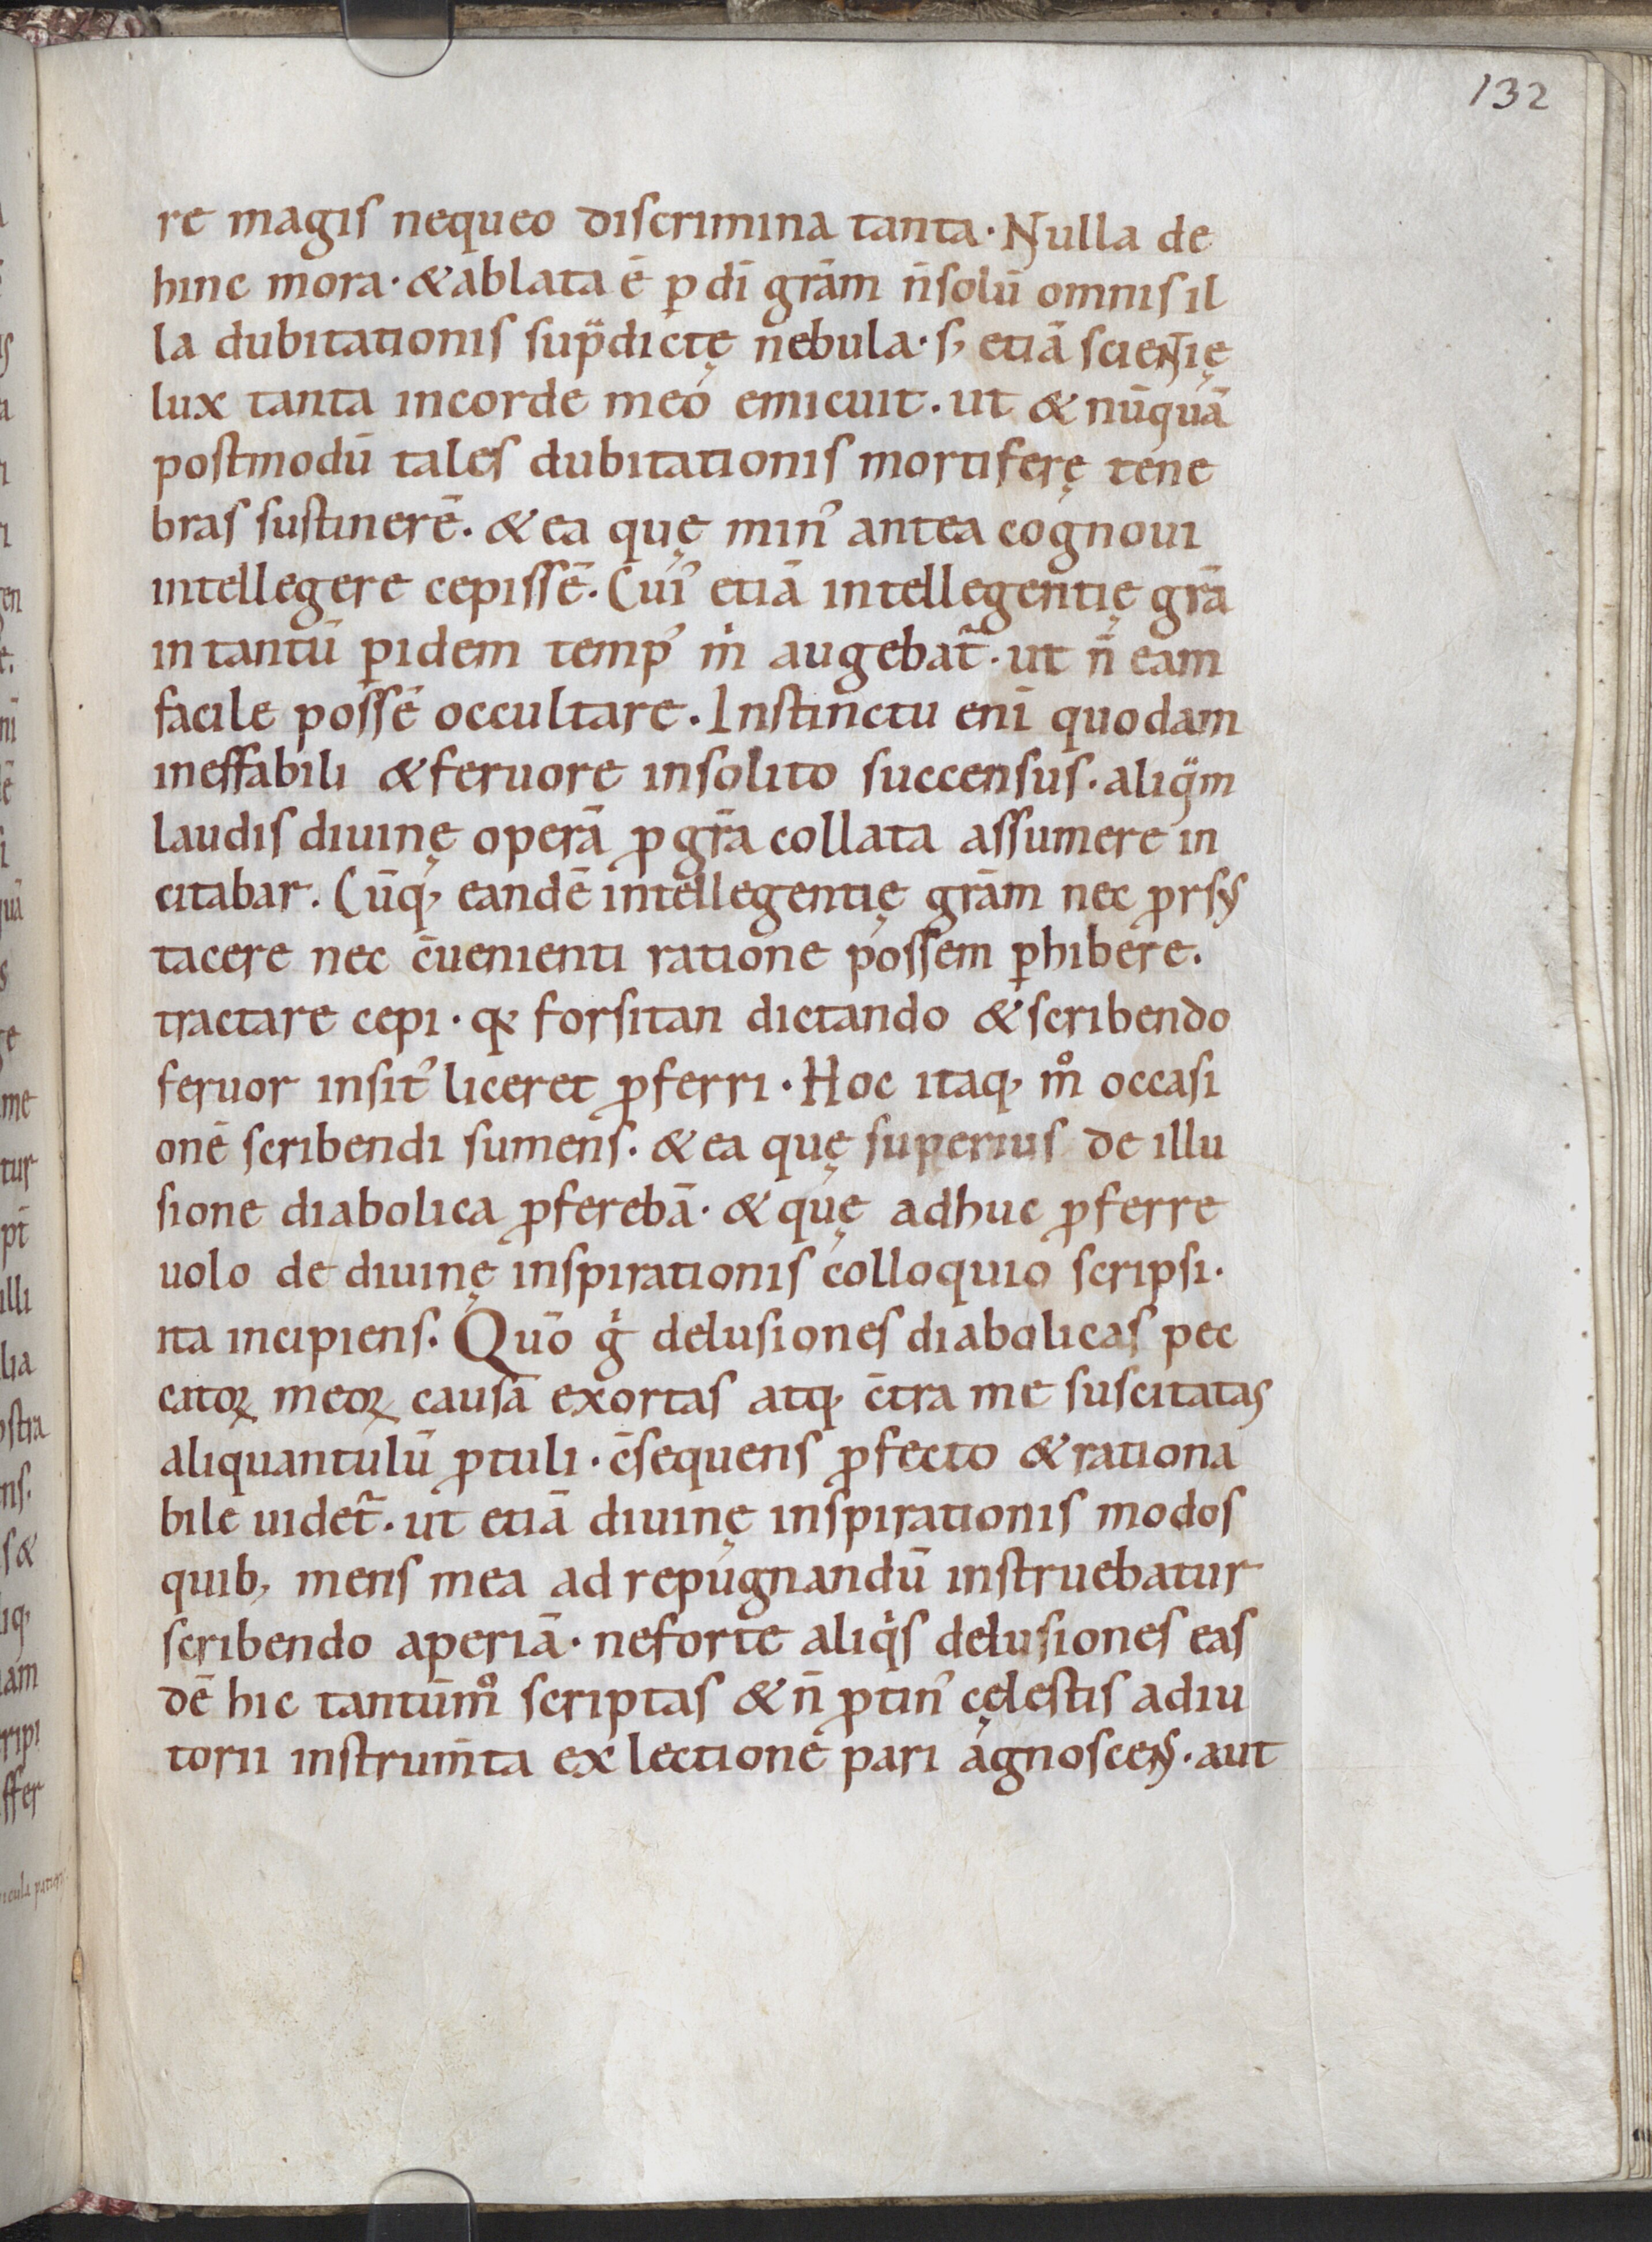 132
re magis nequeo discrimina tanta· Nulla de
hinc mora· & ablata ē ꝑ dī grām n̄ solū omnis il
la dubitationis sup̄dictę nebula· s; etiā scientię
lux tanta in corde meo emicuit· ut & nūquā
postmodū tales dubitationis mortiferę tene
bras sustinerē· & ea quę min᾽ antea cognoui
intellegere cepissē· Cui᾽ etiā intellegentię grā
in tantū ꝑ idem temp᾽ m̍ augebat᷑· ut n̄ eam
facile possē occultare· Instinctu enī quodam
ineffabili & feruore insolito succensus· aliq̈m
laudis diuinę operā ꝓ grā collata assumere in
citabar· Cūq; eandē intellegentię grām nec ꝓrsus
tacere nec c̄uenienti ratione possem ꝑhibere·
tractare cepi· qđ forsitan dictando & scribendo
feruor insit᾽ liceret ꝓferri· Hoc itaq; mͦ occasi
onē scribendi sumens· & ea quę superius de illu
sione diabolica ꝓferebā· & quę adhuc ꝓferre
uolo de diuinę inspirationis colloquio scripsi·
ita incipiens· Quō g̍ delusiones diabolicas pec
catoꝝ meoꝝ causā exortas atq; c̄tra me suscitatas
aliquantulū ꝓtuli· c̄sequens ꝓfecto & rationa
bile uidet᷑· ut etiā diuinę inspirationis modos
quib; mens mea ad repugnandū instruebatur
scribendo aperiā· ne forte aliq̍s delusiones eas
dē hic tantūmͦ scriptas & n̄ ꝓtin᾽ cęlestis adiu
torii instrum̄ta ex lectione pari agnoscens· aut